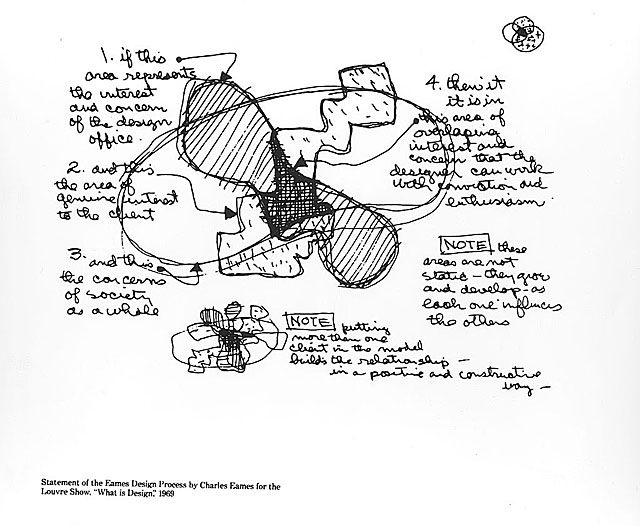 1. if this
area represents
the interest
and concern
of the design
office.
2. and this
the area of
genuine interest
to the client
3. and this
the concerns
of society
as a whole
4. then it
it is in
this area of
overlaping
interest and
concern that the
designer can work
with conviction and
enthusiasm
NOTE these
areas are not
static – they grow
and develop – as
each one influences
the others
NOTE putting
more than one
client in the model
builds the relationship –
in a positive and constructive
way –
Statement of the Eames Design Process by Charles Eames for the
Louvre Show, "What is Design," 1969